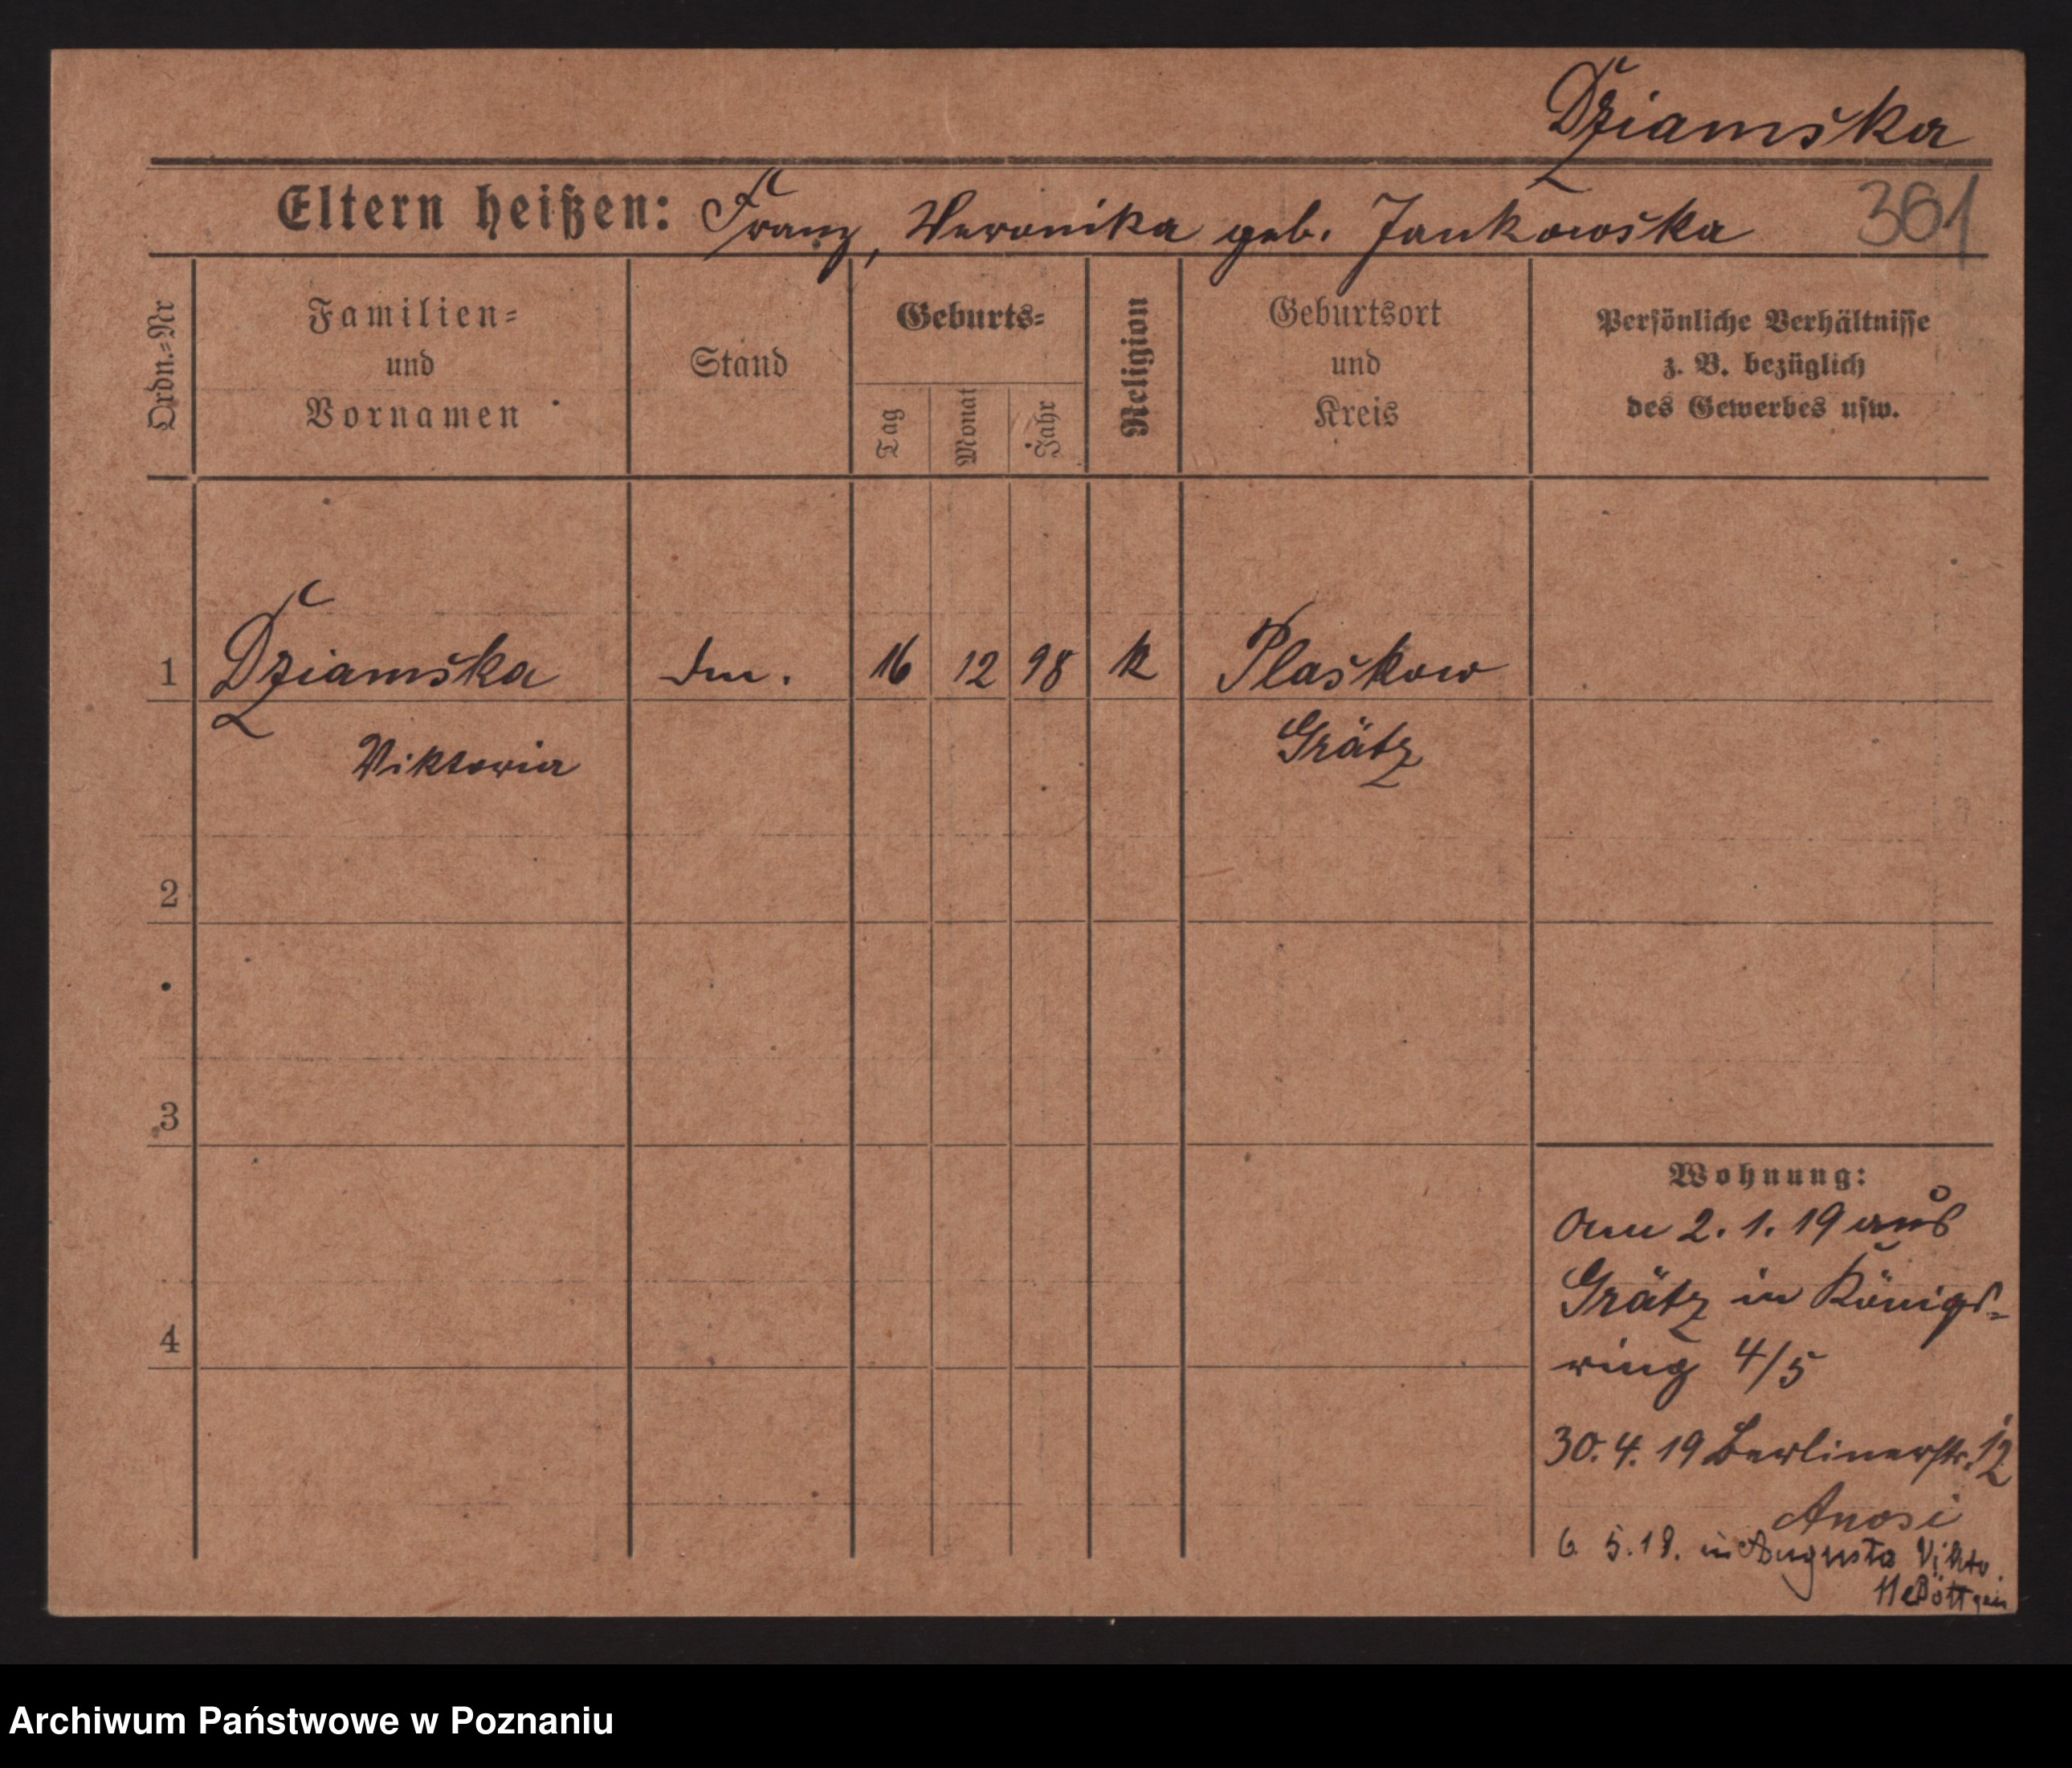 Dziamska
Eltern heißen: Franz, Veronika geb. Jankowska 361
Ordn.=Nr
Familien=
und
Vornamen
Stand
Geburts=
Tag
Monat
Jahr
Religion
Geburtsort
und
Kreis
Persönliche Verhältnisse
z. B. bezüglich
des Gewerbes usw.
1 Dziamska 16 12 98 k Plaskow
Viktoria Grätz
2
3
4
Wohnung:
am 2. 1. 19 aus
Grätz in Königs=
ring 4/5
30. 4. 19 Berlinerstr. 12
6 5. 19. in Augusta Vikto.
11
Archiwum Państwowe w Poznaniu